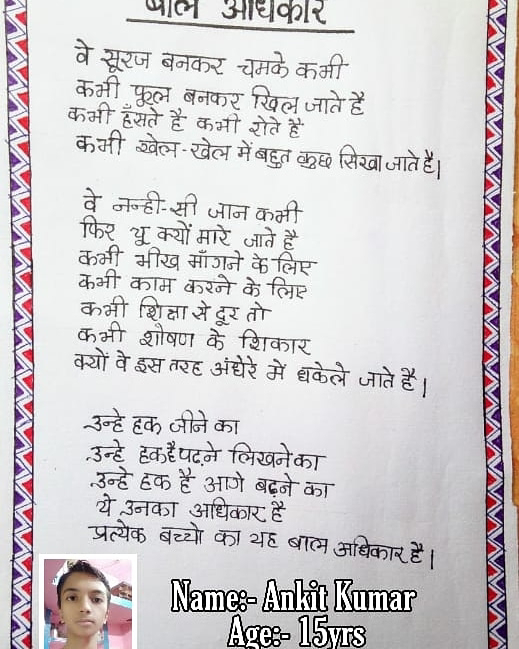 बाल अधिकार
वे सूरज बनकर चमके कभी
कभी फूल बनकर खिल जाते है
कभी हँसते है कभी रोते है
कभी खेल-खेल में बहुत कुछ सिखा जाते है।
वे नन्ही-सी जान कभी
फिर यू क्यों मारे जाते है
कभी भीख माँगने के लिए
कभी काम करने के लिए
कभी शिक्षा से दूर तो
कभी शोषण के शिकार
क्यों वे इस तरह अंधेरे मे धकेले जाते है।
उन्हे हक जीने का
उन्हे हक है पढ़ने लिखने का
उन्हे हक है आगे बढ़ने का
ये उनका अधिकार है
प्रत्येक बच्चो का यह बाल अधिकार है।
Name:- Ankit Kumar
Age:- 15yrs